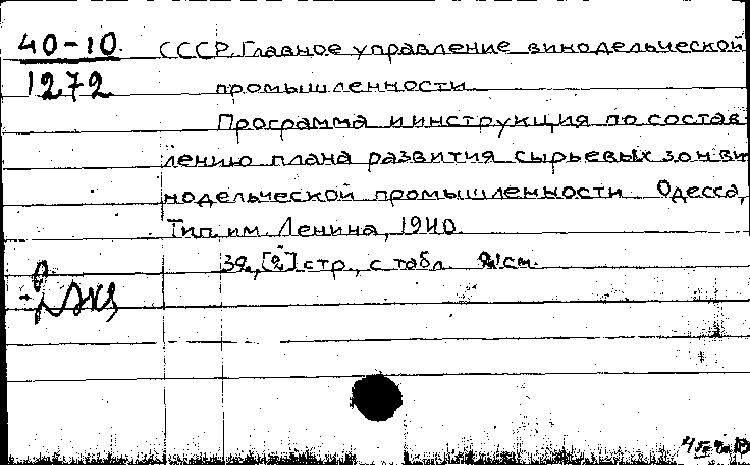 40-10. СССР. Главное управление винодельческой
1272 промышленности.
Программа и инструкция по состав-
лению плана развития сырьевых зон ви-
нодельческой промышленности. Одесса,
Тип. им. Ленина, 1940.
[2] стр., с табл. см.
2 экз